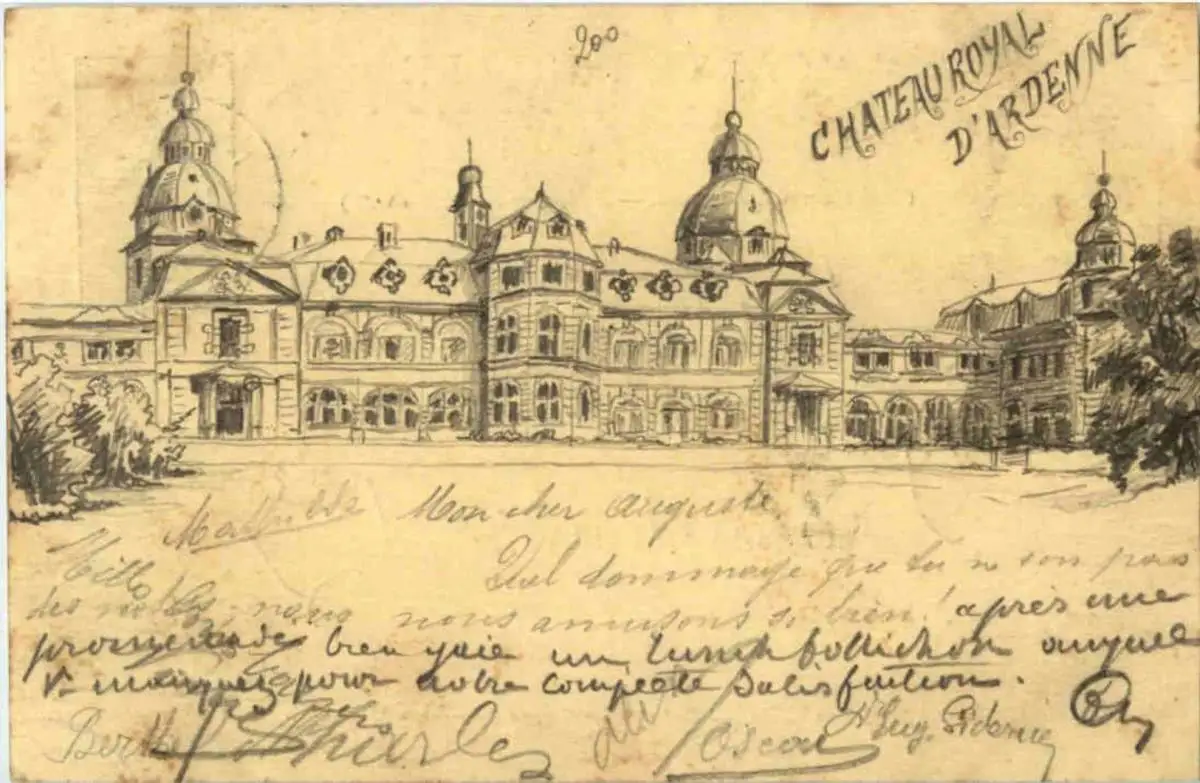 200
CHATEAU ROYAL
D'ARDENNE
Mathilde Mon cher Auguste,
Quel dommage que tu n son pas
des nôtres, nous nous amusons si bien! après une
promenade bien gaie un lunch follichon auquel
Vs manquez pour notre complète satisfaction.
Berthe Charles Oscar Eug.